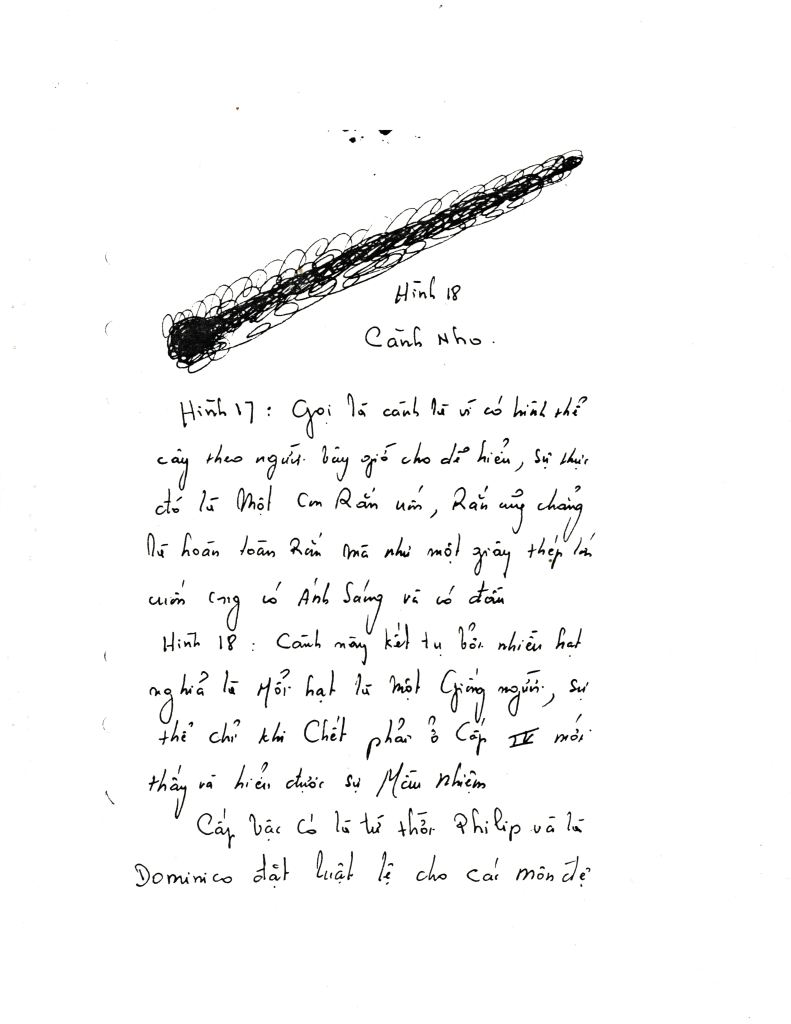 Hình 18
Cành Nho.
Hình 17 : Gọi là cành là vì có hình thể
cây theo người bây giờ cho dể hiểu, sự thực
đó là Một Con Rắn uốn, Rắn cũng chẳng
là hoàn toàn Rắn mà như một giây thép lớn
cuốn có Ánh Sáng và có đầu
Hình 18 : Cành này kết tụ bởi nhiều hạt
nghiã là Mổi hạt là một Giống người, sự
thể chỉ khi Chết phải ở Cấp IV mới
thấy và hiểu được sự Mầu Nhiệm
Cấp bậc có là từ thời Philip và là
Dominico đặt luật lệ cho các môn đệ